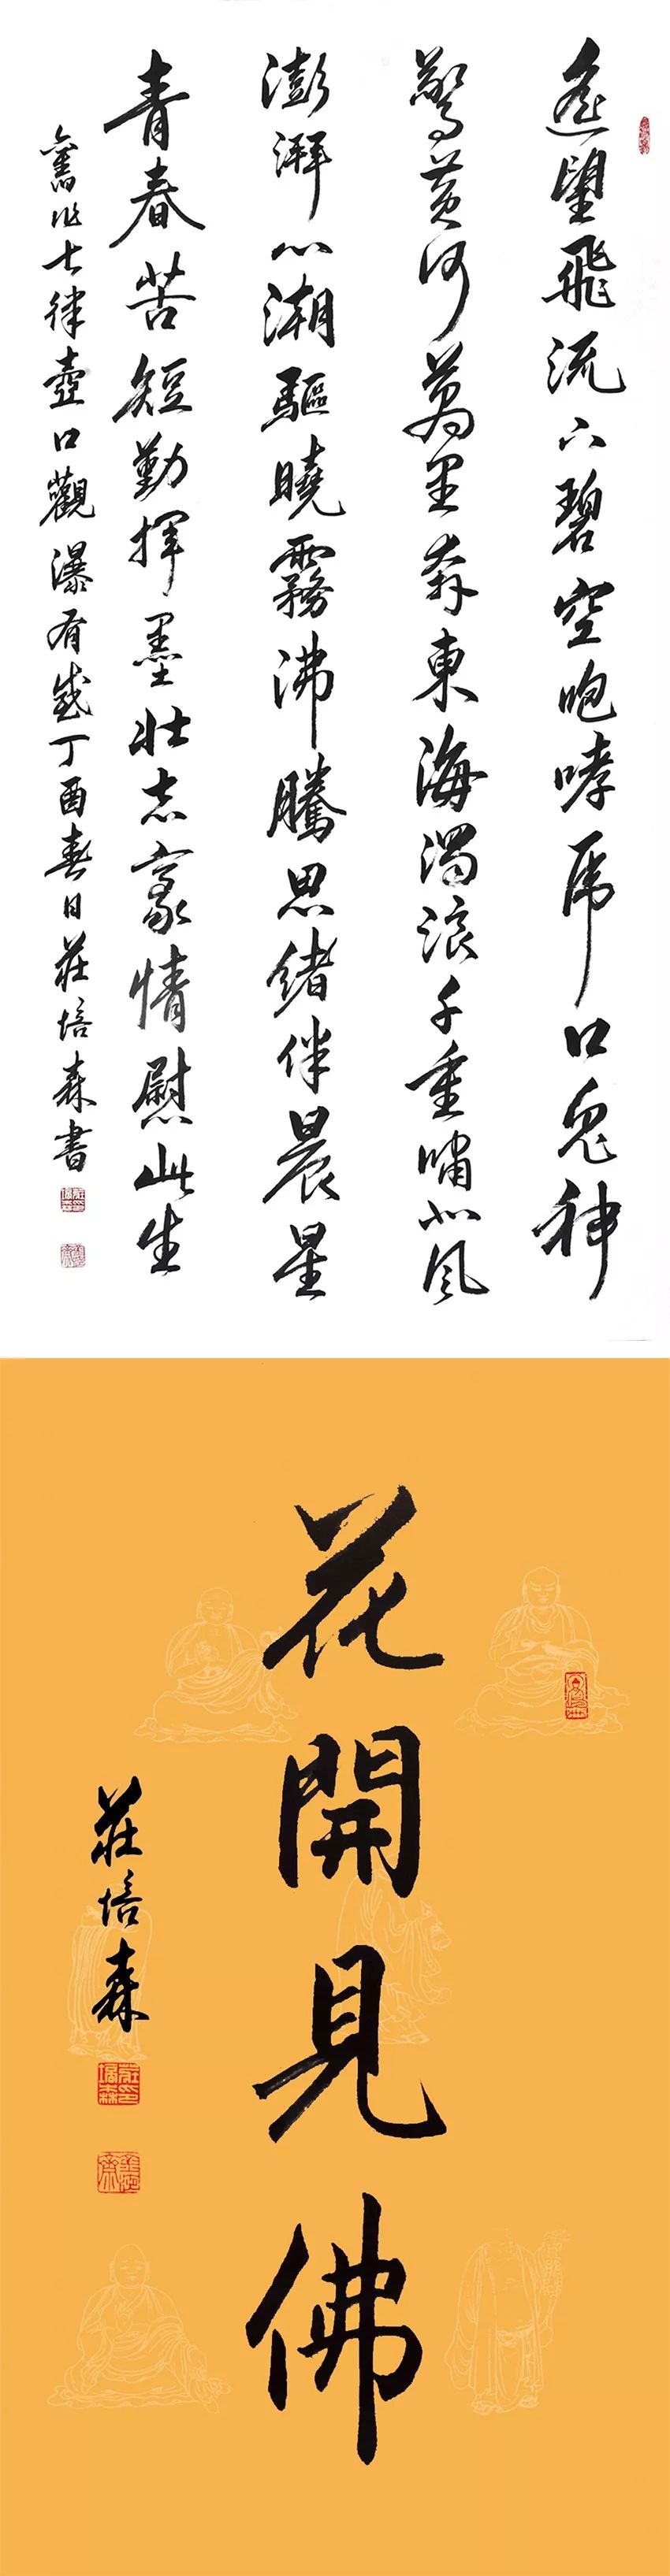 遙望飛流下碧空咆哮虎口鬼神
驚黃河萬里奔東海濁浪千重嘯北風
澎湃心潮驅曉霧沸騰思緒伴晨星
青春苦短勤揮墨壯志豪情慰此生
舊作七律壺口觀瀑有感丁酉春日莊培森書
花開見佛
莊培森
莊印培森